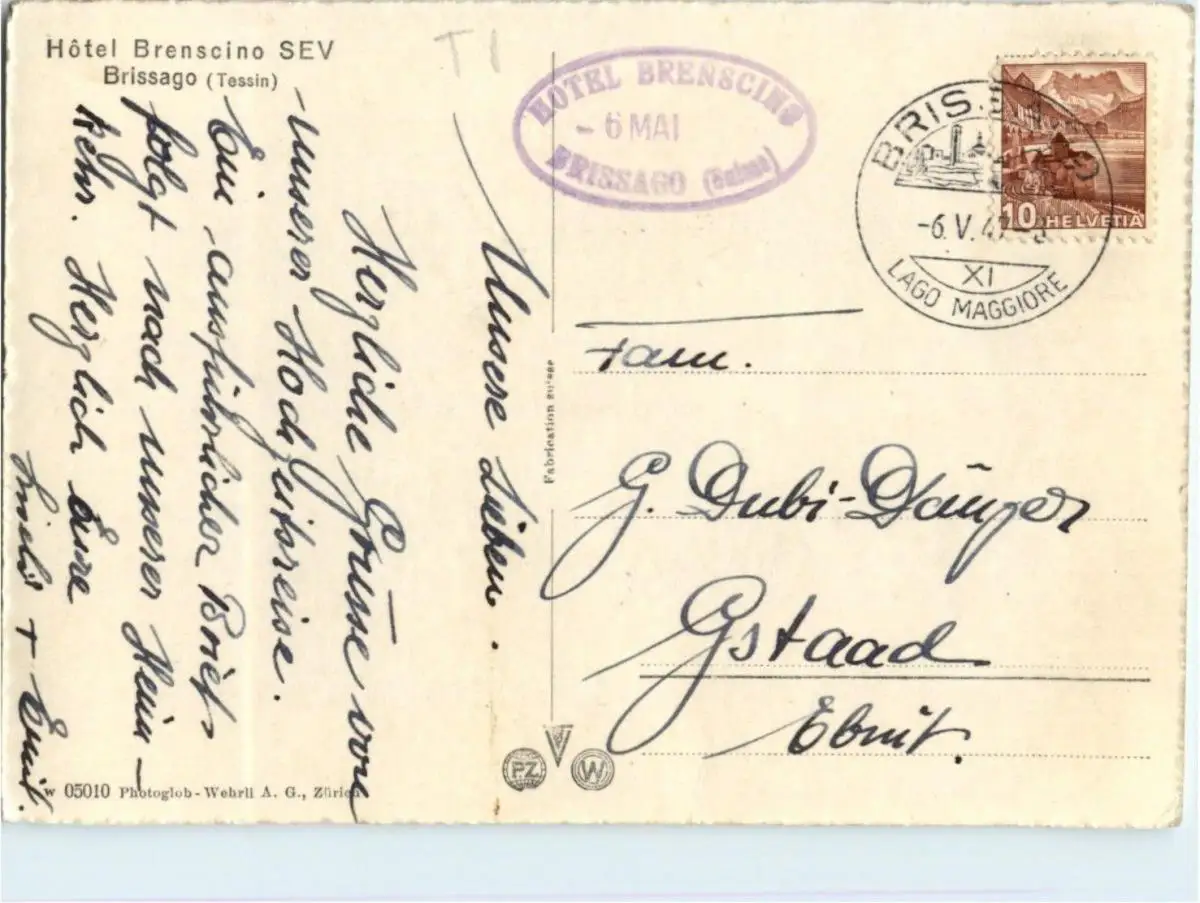 Hôtel Brenscino SEV
Brissago (Tessin)
T I
HOTEL BRENSCINO
- 6 MAI
BRISSAGO (Suisse)
BRIS
GO
-6.V.4
XI
LAGO MAGGIORE
10 HELVETIA
Unsere Lieben.
Herzliche Grüsse von
unserer Hochzeitsreise.
Ein ausführlicher Brief
folgt nach unserer Heim-
kehr. Herzlich Eure
+ Emil.
Fam.
G. Dubi-Dänzer
Gstaad
Ebnit.
Fabrication suisse
PZ
W
W 05010 Photoglob-Wehrli A. G., Zürich